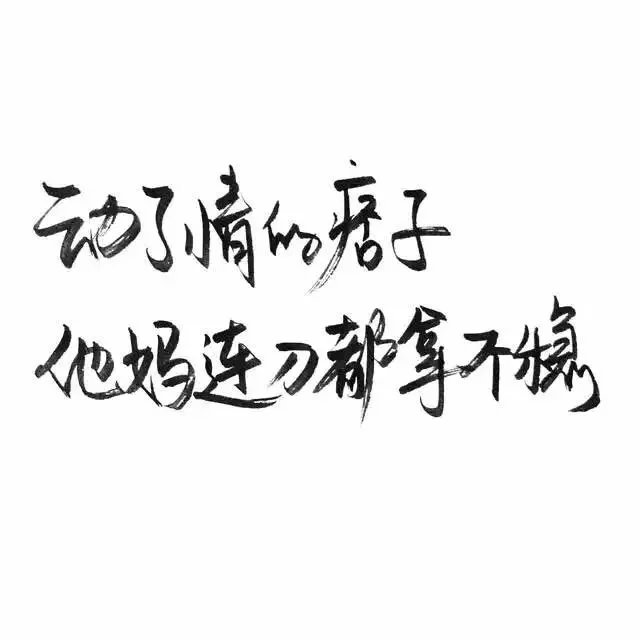 动了情的痞子
他妈连刀都拿不稳